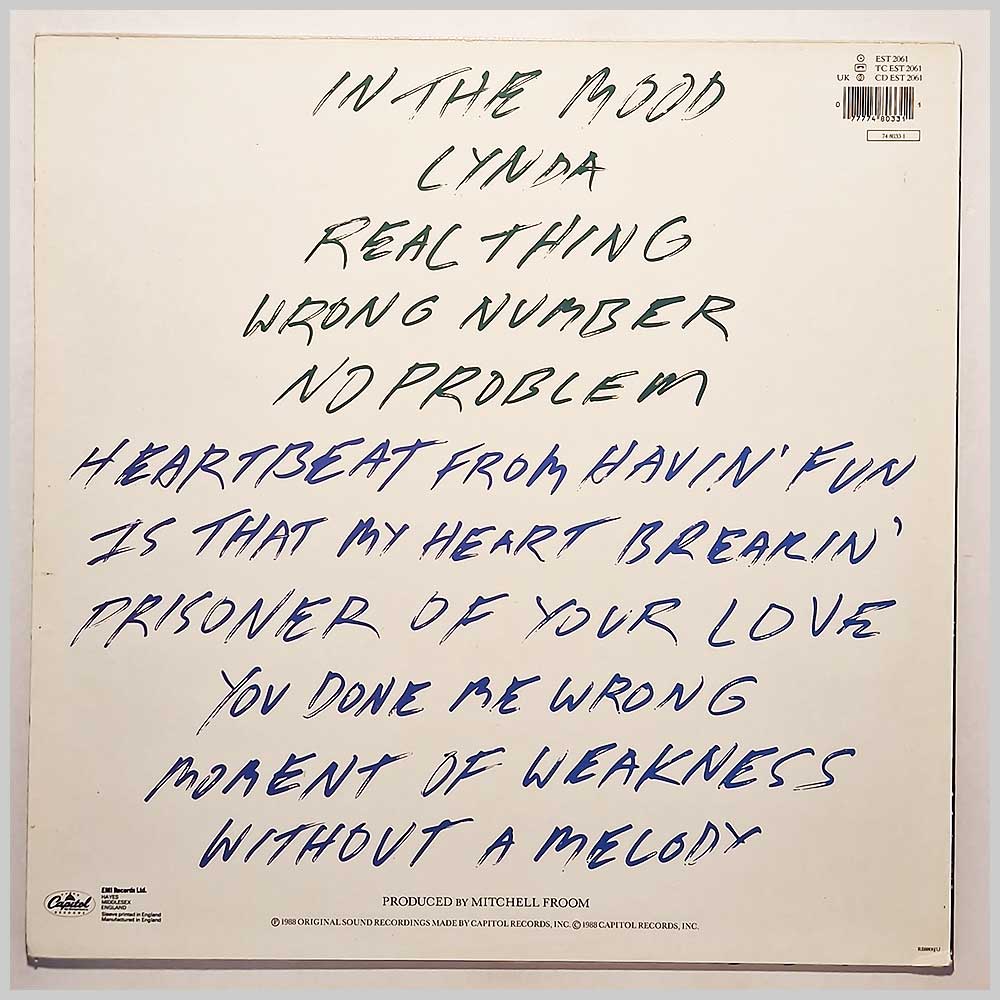 IN THE MOOD
LYNDA
REAL THING
WRONG NUMBER
NO PROBLEM
HEARTBEAT FROM HAVIN' FUN
IS THAT MY HEART BREAKIN'
PRISONER OF YOUR LOVE
YOU DONE ME WRONG
MOMENT OF WEAKNESS
WITHOUT A MELODY
EST 2061
TC EST 2061
UK CD EST 2061
0 77774 80331 1
74 8033 1
Capitol
RECORDS
EMI Records Ltd.
HAYES
MIDDLESEX
ENGLAND
Sleeve printed in England
Manufactured in England
PRODUCED BY MITCHELL FROOM
℗ 1988 ORIGINAL SOUND RECORDINGS MADE BY CAPITOL RECORDS, INC. © 1988 CAPITOL RECORDS, INC.